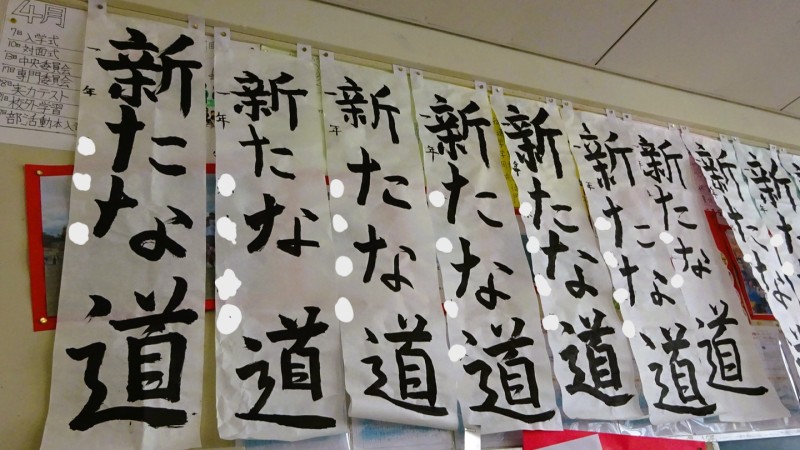 4月
入学式
対面式
中央委員会
専門委員会
実力テスト
校外学習
部活動本入
一年
新たな道
一年
新たな道
一年
新たな道
一年
新たな道
一年
新たな道
一年
新たな道
新たな道
新たな道
新たな